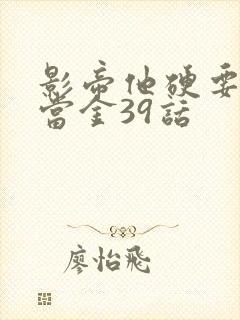 影帝他硬要
當金39話
廖怡飛